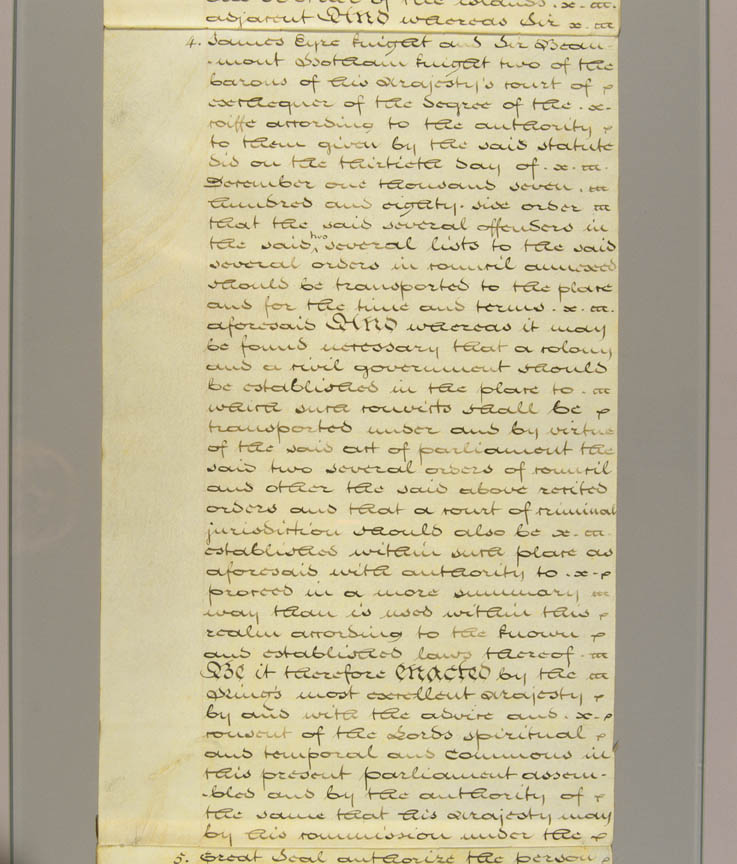 of the islands
adjacent And whereas Sir
4. James Eyre Knight and Sir Beau-
-mont Hotham Knight two of the
barons of his Majesty's court of
exchequer of the degree of the
coiffe according to the authority
to them given by the said statute
did on the thirtieth day of
December one thousand seven
hundred and eighty-six order
that the said several offenders in
the said two several lists to the said
several orders in council annexed
should be transported to the place
and for the time and terms
aforesaid And whereas it may
be found necessary that a colony
and a civil government should
be established in the place to
which such convicts shall be
transported under and by virtue
of the said act of parliament the
said two several orders of council
and other the said above recited
orders and that a court of criminal
jurisdiction should also be
established within such place as
aforesaid with authority to
proceed in a more summary
way than is used within this
realm according to the known
and established laws thereof
Be it therefore enacted by the
King's most excellent Majesty
by and with the advice and
consent of the Lords spiritual
and temporal and Commons in
this present parliament assem-
-bled and by the authority of
the same that his Majesty may
by his commission under the
5. Great Seal authorize the person